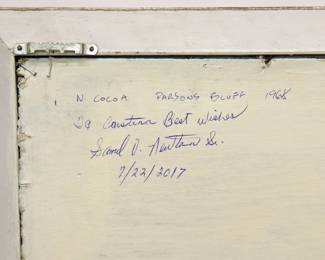 N. COCOA PARSONS BLUFF 1968
To Best Wishes
Newton Sr.
7/22/2017